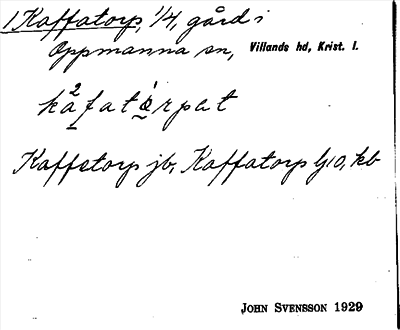 1 Kaffatorp, 1/4, gård i
Oppmanna sn, Villands hd, Krist. l.
Kaffetorp jb, Kaffatorp kb
JOHN SVENSSON 1929